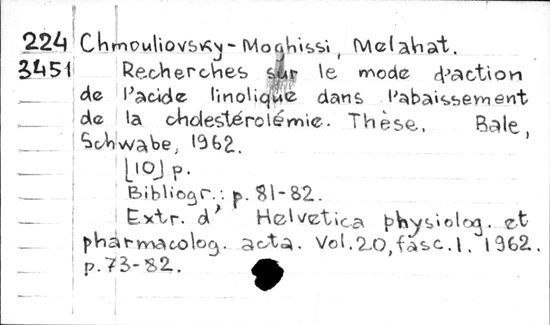 224 Chmouliovsky-Moghissi, Melahat.
3451 Recherches sur le mode d'action
de l'acide linolique dans l'abaissement
de la cholestérolémie. Thèse. Bale,
Schwabe, 1962.
[10] p.
Bibliogr.: p. 81-82.
Extr. d' Helvetica physiolog. et
pharmacolog. acta. Vol. 20, fasc. 1. 1962.
p. 73-82.